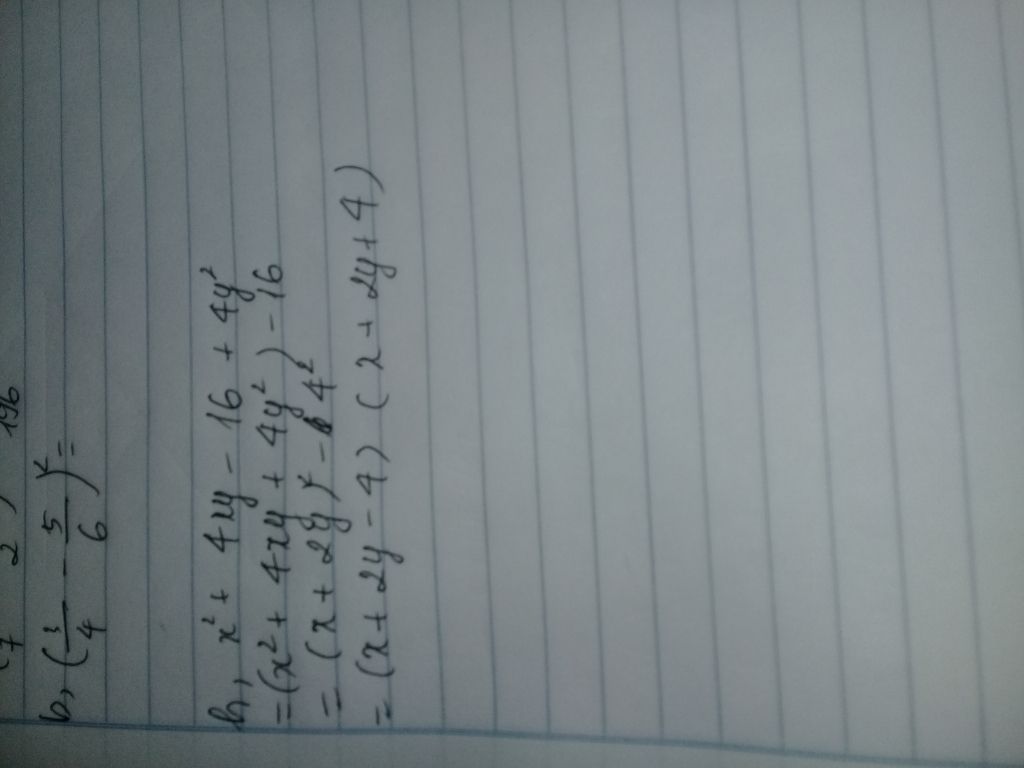 7 2 ) 196
b, (3/4 - 5/6)² =
b, x² + 4xy - 16 + 4y²
= (x² + 4xy + 4y²) - 16
= (x + 2y)² - 4²
= (x + 2y - 4) (x + 2y + 4)